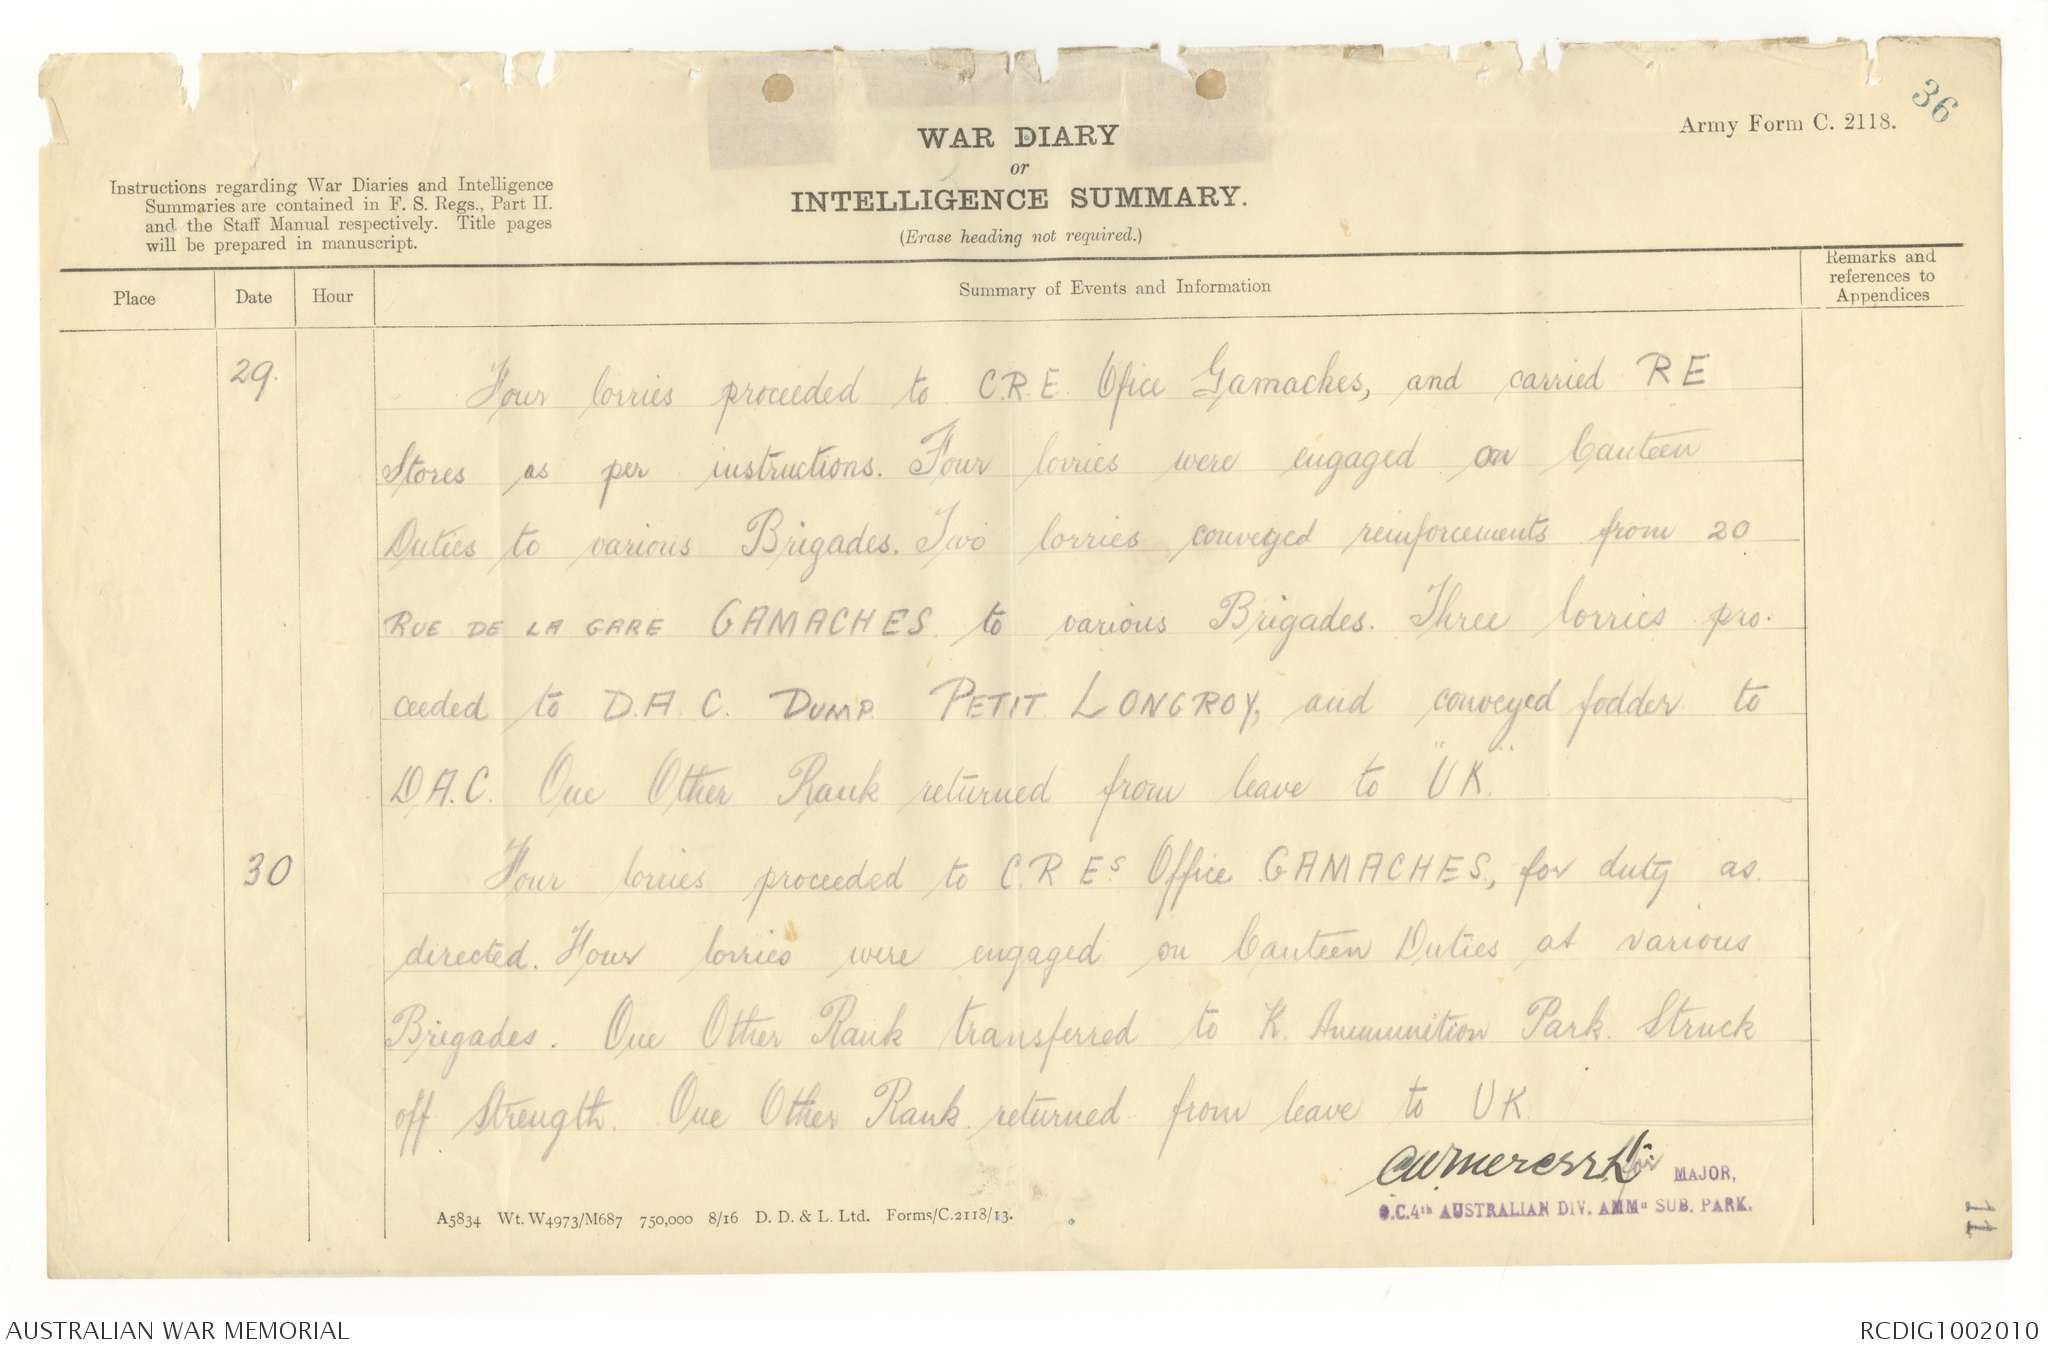 36
Army Form C. 2118.
WAR DIARY
or
INTELLIGENCE SUMMARY.
(Erase heading not required.)
Instructions regarding War Diaries and Intelligence
Summaries are contained in F. S. Regs., Part II.
and the Staff Manual respectively. Title pages
will be prepared in manuscript.
Place Date Hour Summary of Events and Information Remarks and
references to
Appendices
29. Four lorries proceeded to C.R.E. Ofice Gamaches, and carried R E
Stores as per instructions. Four lorries were engaged on Canteen
Duties to various Brigades. Two lorries conveyed reinforcements from 20
RUE DE LA GARE GAMACHES. to various Brigades. Three lorries pro-
ceeded to D.A.C. DUMP PETIT LONGROY, and conveyed fodder to
D.A.C. One Other Rank returned from leave to "UK".
30 Four lorries proceeded to C.R Es Office GAMACHES, for duty as
directed. Four lorries were engaged on Canteen Duties at various
Brigades. One Other Rank transferred to K. Ammunition Park. Struck
off Strength. One Other Rank returned from leave to UK
for MAJOR,
O.C. 4th AUSTRALIAN DIV. AMMn SUB. PARK.
A5834 Wt. W4973/M687 750,000 8/16 D. D. & L. Ltd. Forms/C.2118/13.
11
AUSTRALIAN WAR MEMORIAL
RCDIG1002010